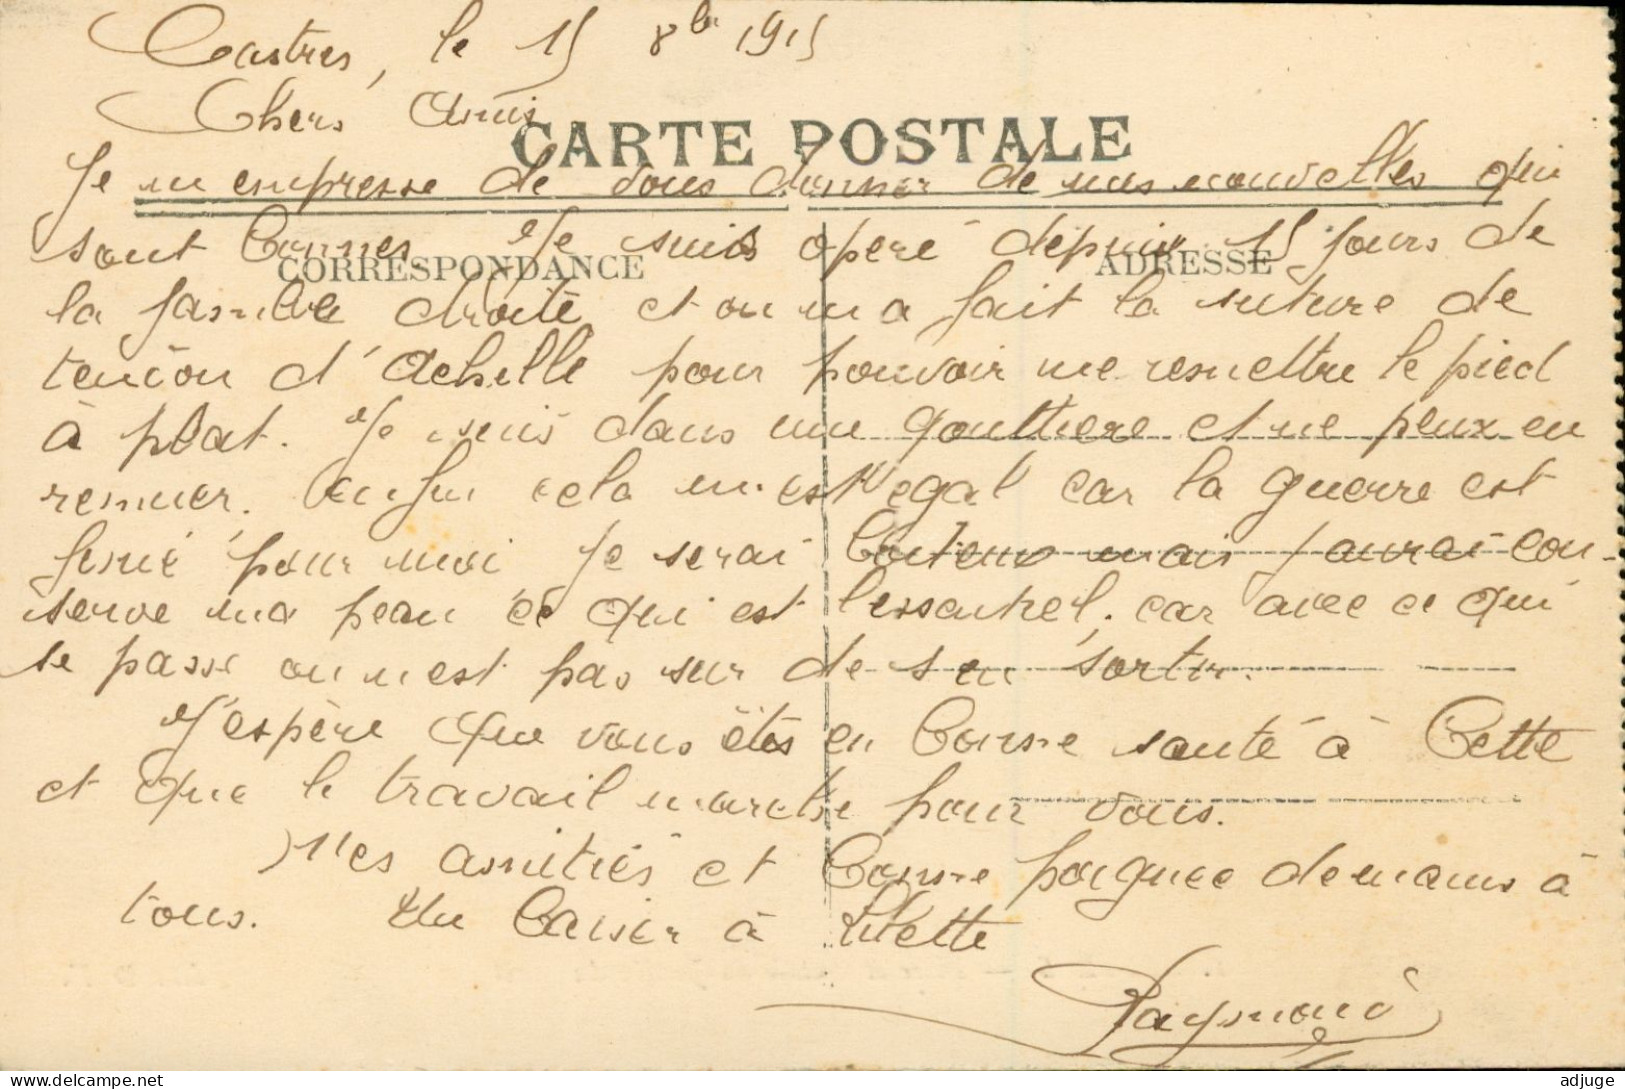 Castres, le 15 8bre 1915
Chers Amis
CARTE POSTALE
Je m empresse de vous donner de mes nouvelles qui
sont bonnes. Je suis opéré depuis 15 jours de
CORRESPONDANCE
ADRESSE
la jambe droite et on m a fait la suture de
tendon d'Achille pour pouvoir me remettre le pied
à plat. Je suis dans une gouttiere et ne peux en
remuer. Enfin cela m est egal car la guerre est
finie pour moi Je serai boiteux mais j aurai con-
serve ma peau ce qui est l'essentiel, car avec ce qui
se passe on n est pas sur de s en sortir.
J'espère que vous êtes en bonne santé à Cette
et que le travail marche pour vous.
Mes amitiés et bonne poignee de mains à
tous. Un baiser à Lilette
Raymond
adjuge